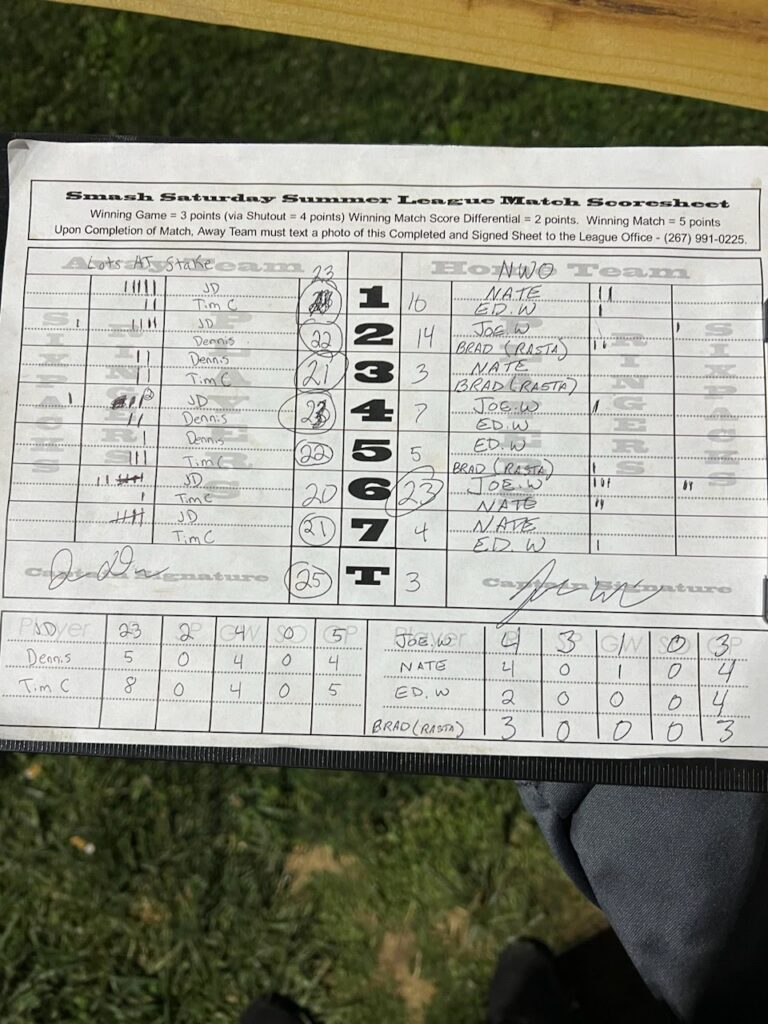 Smash Saturday Summer League Match Scoresheet
Winning Game = 3 points (via Shutout = 4 points) Winning Match Score Differential = 2 points. Winning Match = 5 points
Upon Completion of Match, Away Team must text a photo of this Completed and Signed Sheet to the League Office - (267) 991-0225.
Away Team Lots At Stake Home Team NWO
JD 23 1 16 NATE
Tim C ED.W
JD 22 2 14 JOE.W
Dennis BRAD (RASTA)
Dennis 21 3 3 NATE
Tim C BRAD (RASTA)
JD 4 7 JOE.W
Dennis ED.W
Dennis 22 5 5 ED.W
Tim C BRAD (RASTA)
JD 20 6 23 JOE.W
Tim C NATE
JD 21 7 4 NATE
Tim C ED.W
Captain Signature 25 T 3 Captain Signature
SIXPACKS RINGERS PLAYERS PLAYERS RINGERS SIXPACKS
Player R SP GW SO GP Player R SP GW SO GP
JD 23 2 4 0 5 JOE.W 4 3 1 0 3
Dennis 5 0 4 0 4 NATE 4 0 1 0 4
Tim C 8 0 4 0 5 ED.W 2 0 0 0 4
BRAD (RASTA) 3 0 0 0 3